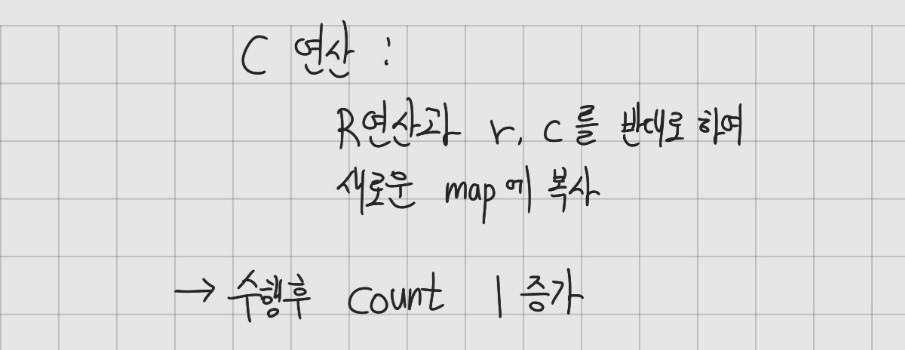 C 연산 :
R연산과 r, c를 반대로 하여
새로운 map에 복사
→ 수행후 count 1 증가